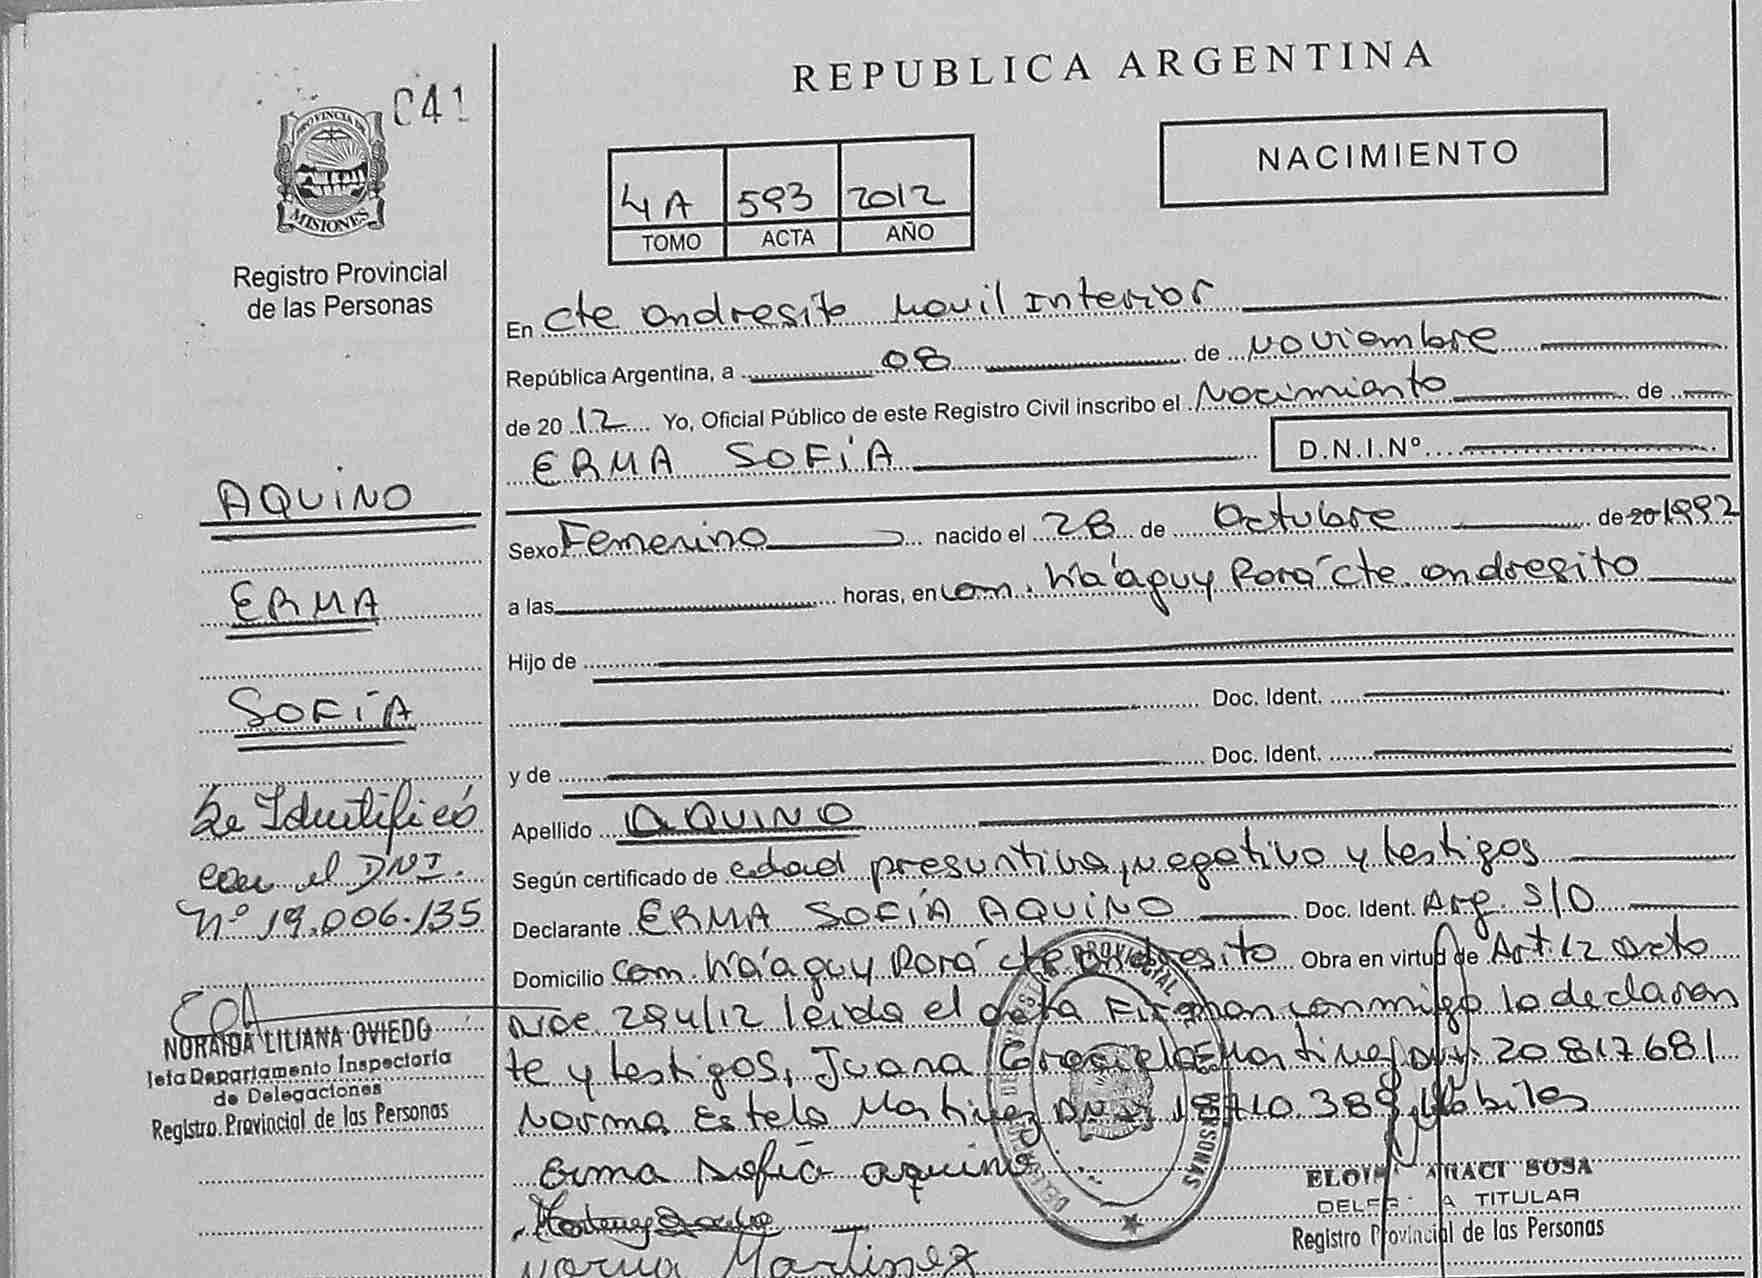 REPUBLICA ARGENTINA
041
PROVINCIA DE
MISIONES
Registro Provincial
de las Personas
NACIMIENTO
4A 593 2012
TOMO ACTA AÑO
En Cte Andresito Movil Interior
República Argentina, a 08 de Noviembre
de 2012 Yo, Oficial Público de este Registro Civil inscribo el Nacimiento de
ERMA SOFÍA D.N.I.Nº
AQUINO
ERMA
SOFÍA
Se Identificó
con el DNI.
Nº 19.006.135
NORAIDA LILIANA OVIEDO
Jefa Departamento Inspectoria
de Delegaciones
Registro Provincial de las Personas
Sexo Femenino nacido el 28 de Octubre de 20 1992
a las horas, en Com. Ka'aguy Porá Cte Andresito
Hijo de
Doc. Ident.
y de Doc. Ident.
Apellido AQUINO
Según certificado de edad presuntiva, negativo y testigos
Declarante ERMA SOFÍA AQUINO Doc. Ident. Arg. S/D
Domicilio Com. Ka'aguy Porá Cte Andresito Obra en virtud de Art. 12 Dcto
Nac 294/12 leida el acta Firman conmigo la declaran
te y testigos, Juana Graciela Martinez DNI. 20.817.681
Norma Estela Martinez DNI 18.710.389, Habiles
Erma Sofía Aquino
Norma Martinez
PERSONAS
ARACI SOSA
TITULAR
Registro Provincial de las Personas